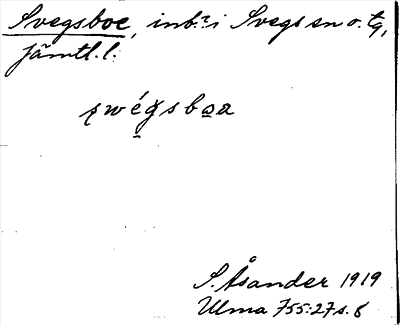 Svegsboe, inb:r i Svegs sn o. tg,
jämtl. l:
swégsboa
S. Åsander 1919
Ulma 755:27 s. 8